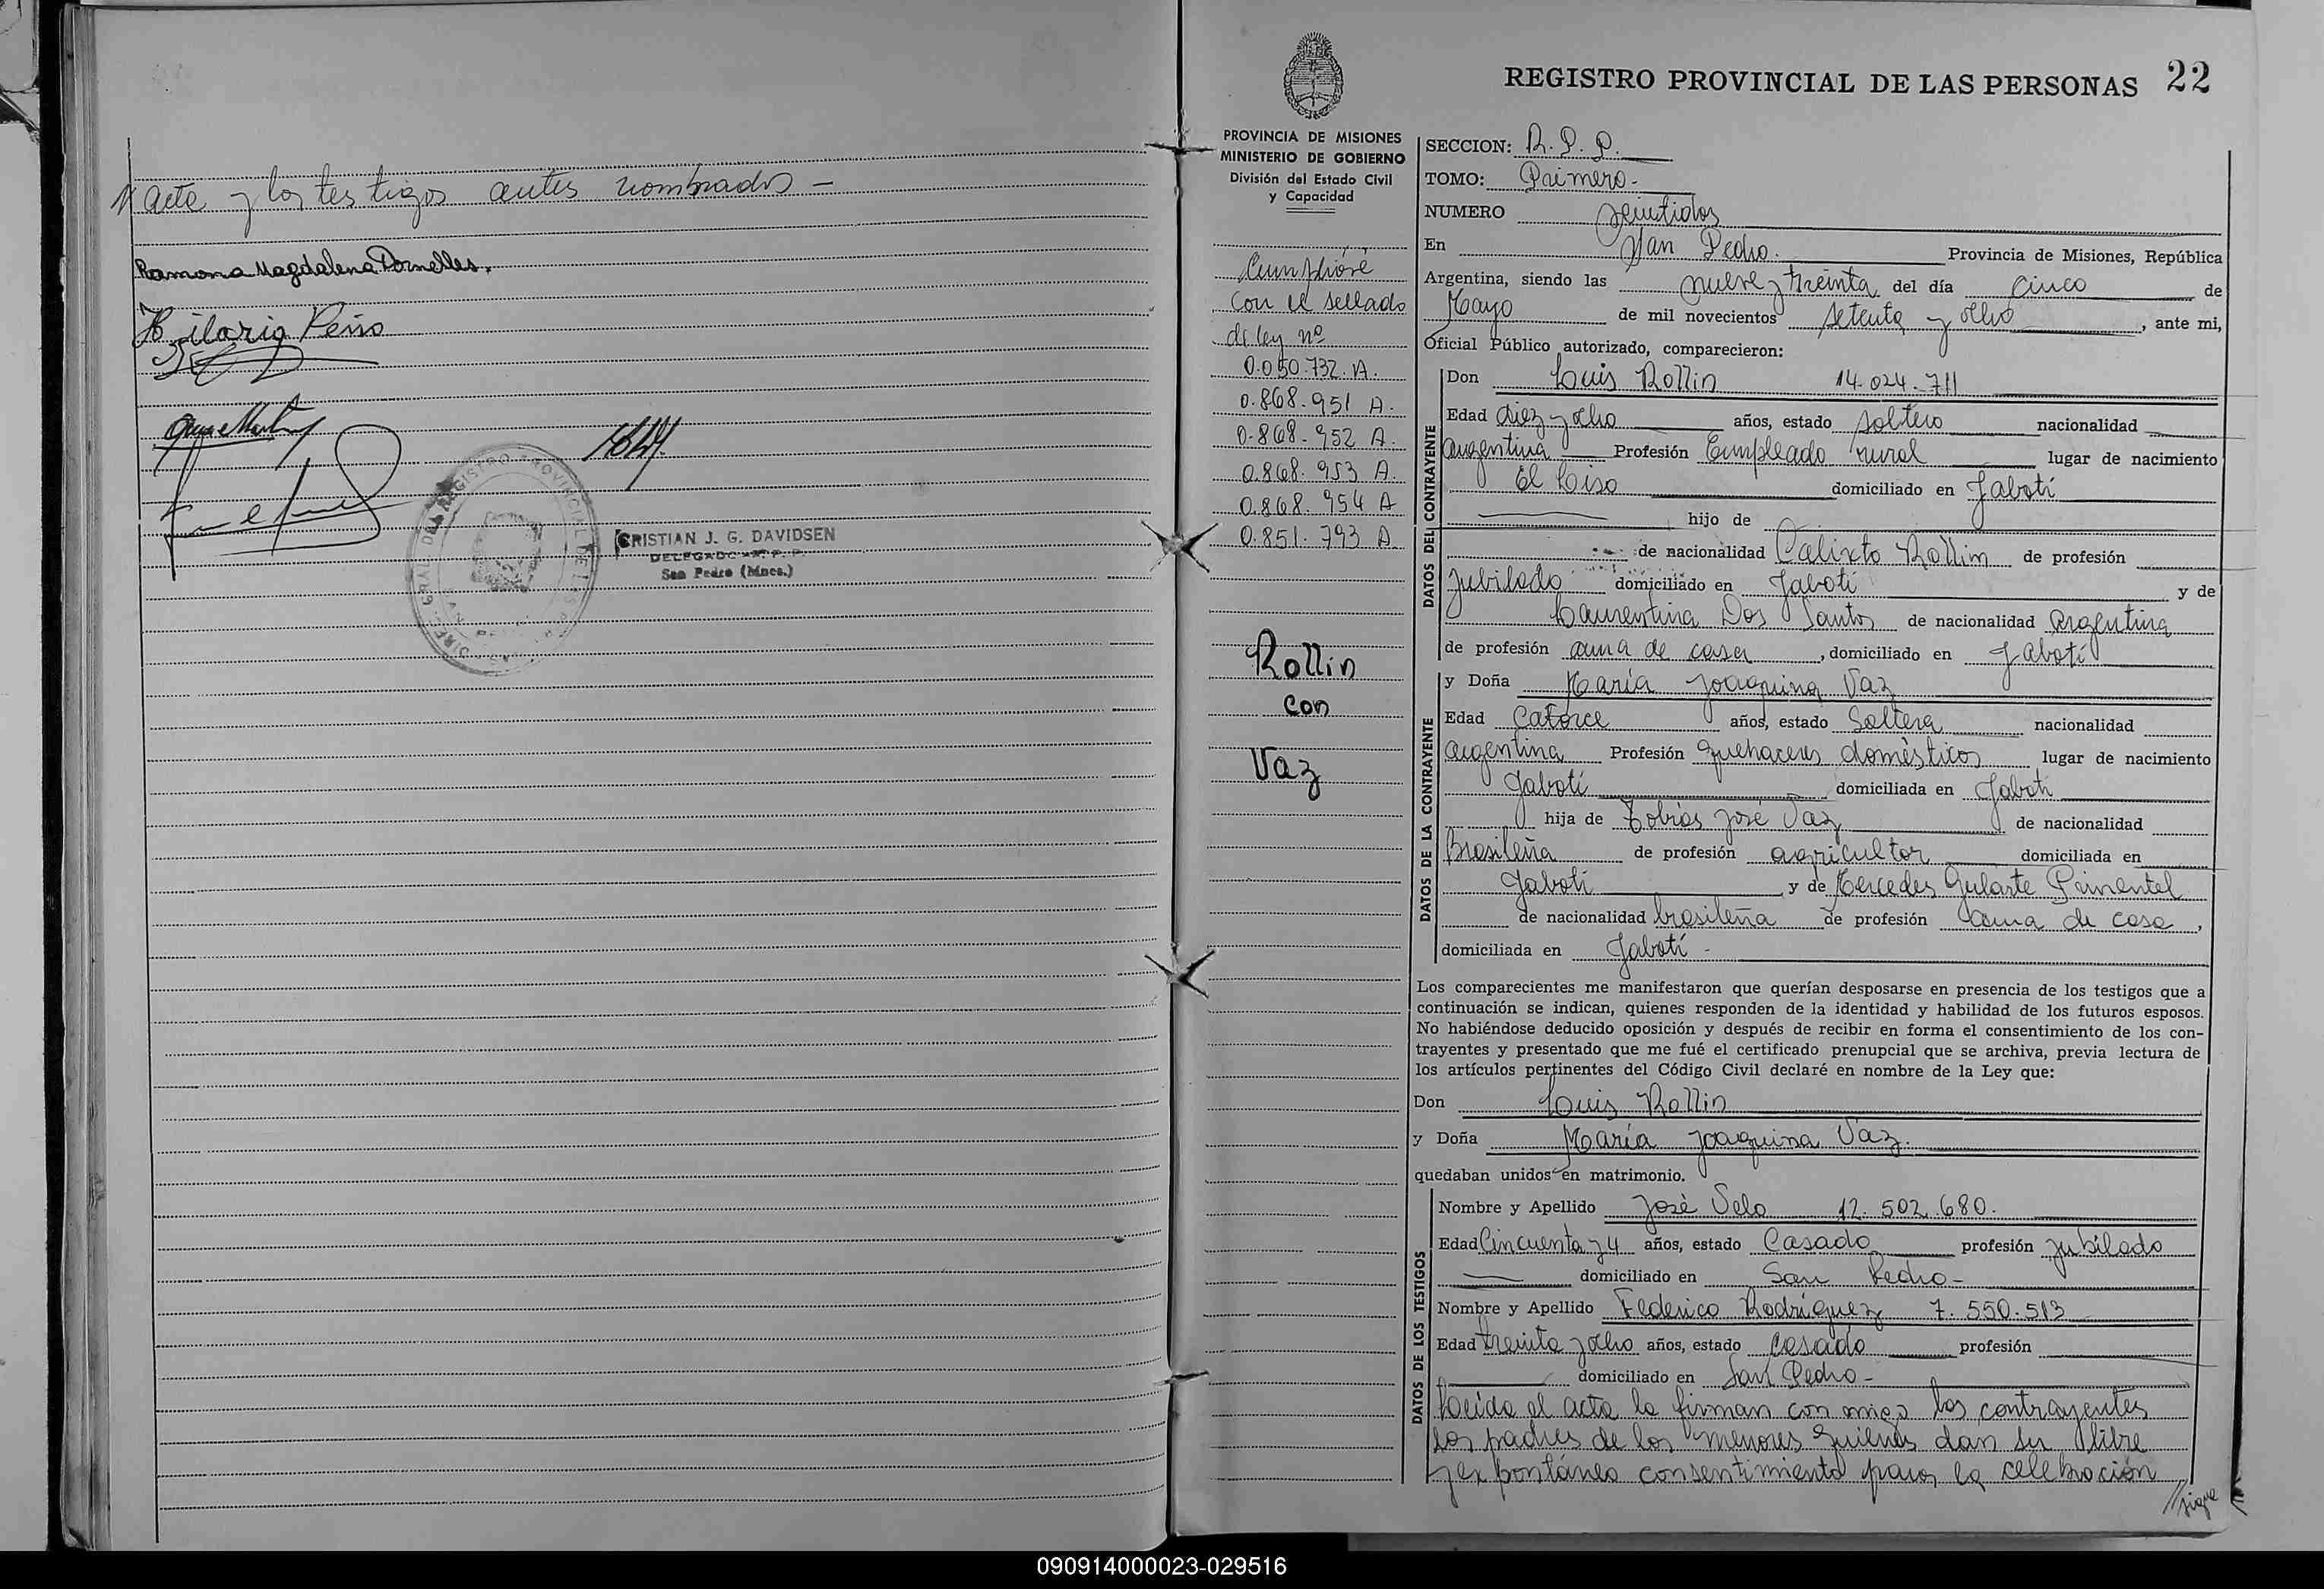 // acta y los testigos antes nombrados -
Ramona Magdalena Dornelles.
Hilario
CRISTIAN J. G. DAVIDSEN
DELEGADO R. P. P.
San Pedro (Mnes.)
REGISTRO PROVINCIAL DE LAS PERSONAS 22
PROVINCIA DE MISIONES
MINISTERIO DE GOBIERNO
División del Estado Civil
y Capacidad
Cumplióse
con el sellado
de ley nº
0.050.732 A.
0.868.951 A.
0.868.952 A.
0.868.953 A.
0.868.954 A
0.851.793 A.
Rollin
con
Vaz
SECCION: R. P. P.
TOMO: Primero-
NUMERO veintidos
En San Pedro. Provincia de Misiones, República
Argentina, siendo las nueve y treinta del día cinco de
Mayo de mil novecientos setenta y ocho, ante mi,
Oficial Público autorizado, comparecieron:
DATOS DEL CONTRAYENTE
Don Luis Rollin 14.024.711
Edad diez y ocho años, estado soltero nacionalidad
argentina Profesión Empleado rural lugar de nacimiento
El Liso domiciliado en Jabotí
hijo de
de nacionalidad Calixto Rollin de profesión
Jubilado domiciliado en Jabotí y de
Laurentina Dos Santos de nacionalidad Argentina
de profesión ama de casa, domiciliado en Jabotí
DATOS DE LA CONTRAYENTE
y Doña María Joaquina Vaz
Edad Catorce años, estado Soltera nacionalidad
argentina Profesión quehaceres domésticos lugar de nacimiento
Jabotí domiciliada en Jaboti
hija de Tobías José Vaz de nacionalidad
Brasileña de profesión agricultor domiciliada en
Jabotí y de Mercedes Gularte Pimentel
de nacionalidad brasileña de profesión ama de casa,
domiciliada en Jabotí -
Los comparecientes me manifestaron que querían desposarse en presencia de los testigos que a
continuación se indican, quienes responden de la identidad y habilidad de los futuros esposos.
No habiéndose deducido oposición y después de recibir en forma el consentimiento de los con-
trayentes y presentado que me fué el certificado prenupcial que se archiva, previa lectura de
los artículos pertinentes del Código Civil declaré en nombre de la Ley que:
Don Luis Rollin
y Doña María Joaquina Vaz.
quedaban unidos en matrimonio.
DATOS DE LOS TESTIGOS
Nombre y Apellido José Velo 12.502.680.
Edad Cincuenta y 4 años, estado Casado profesión jubilado
domiciliado en San Pedro-
Nombre y Apellido Federico Rodríguez 7.550.513
Edad treinta y ocho años, estado casado profesión
domiciliado en San Pedro-
Leida el acta la firman con migo los contrayentes
los padres de los menores quienes dan su libre
y expontáneo consentimiento para la celebración
//sigue
090914000023-029516